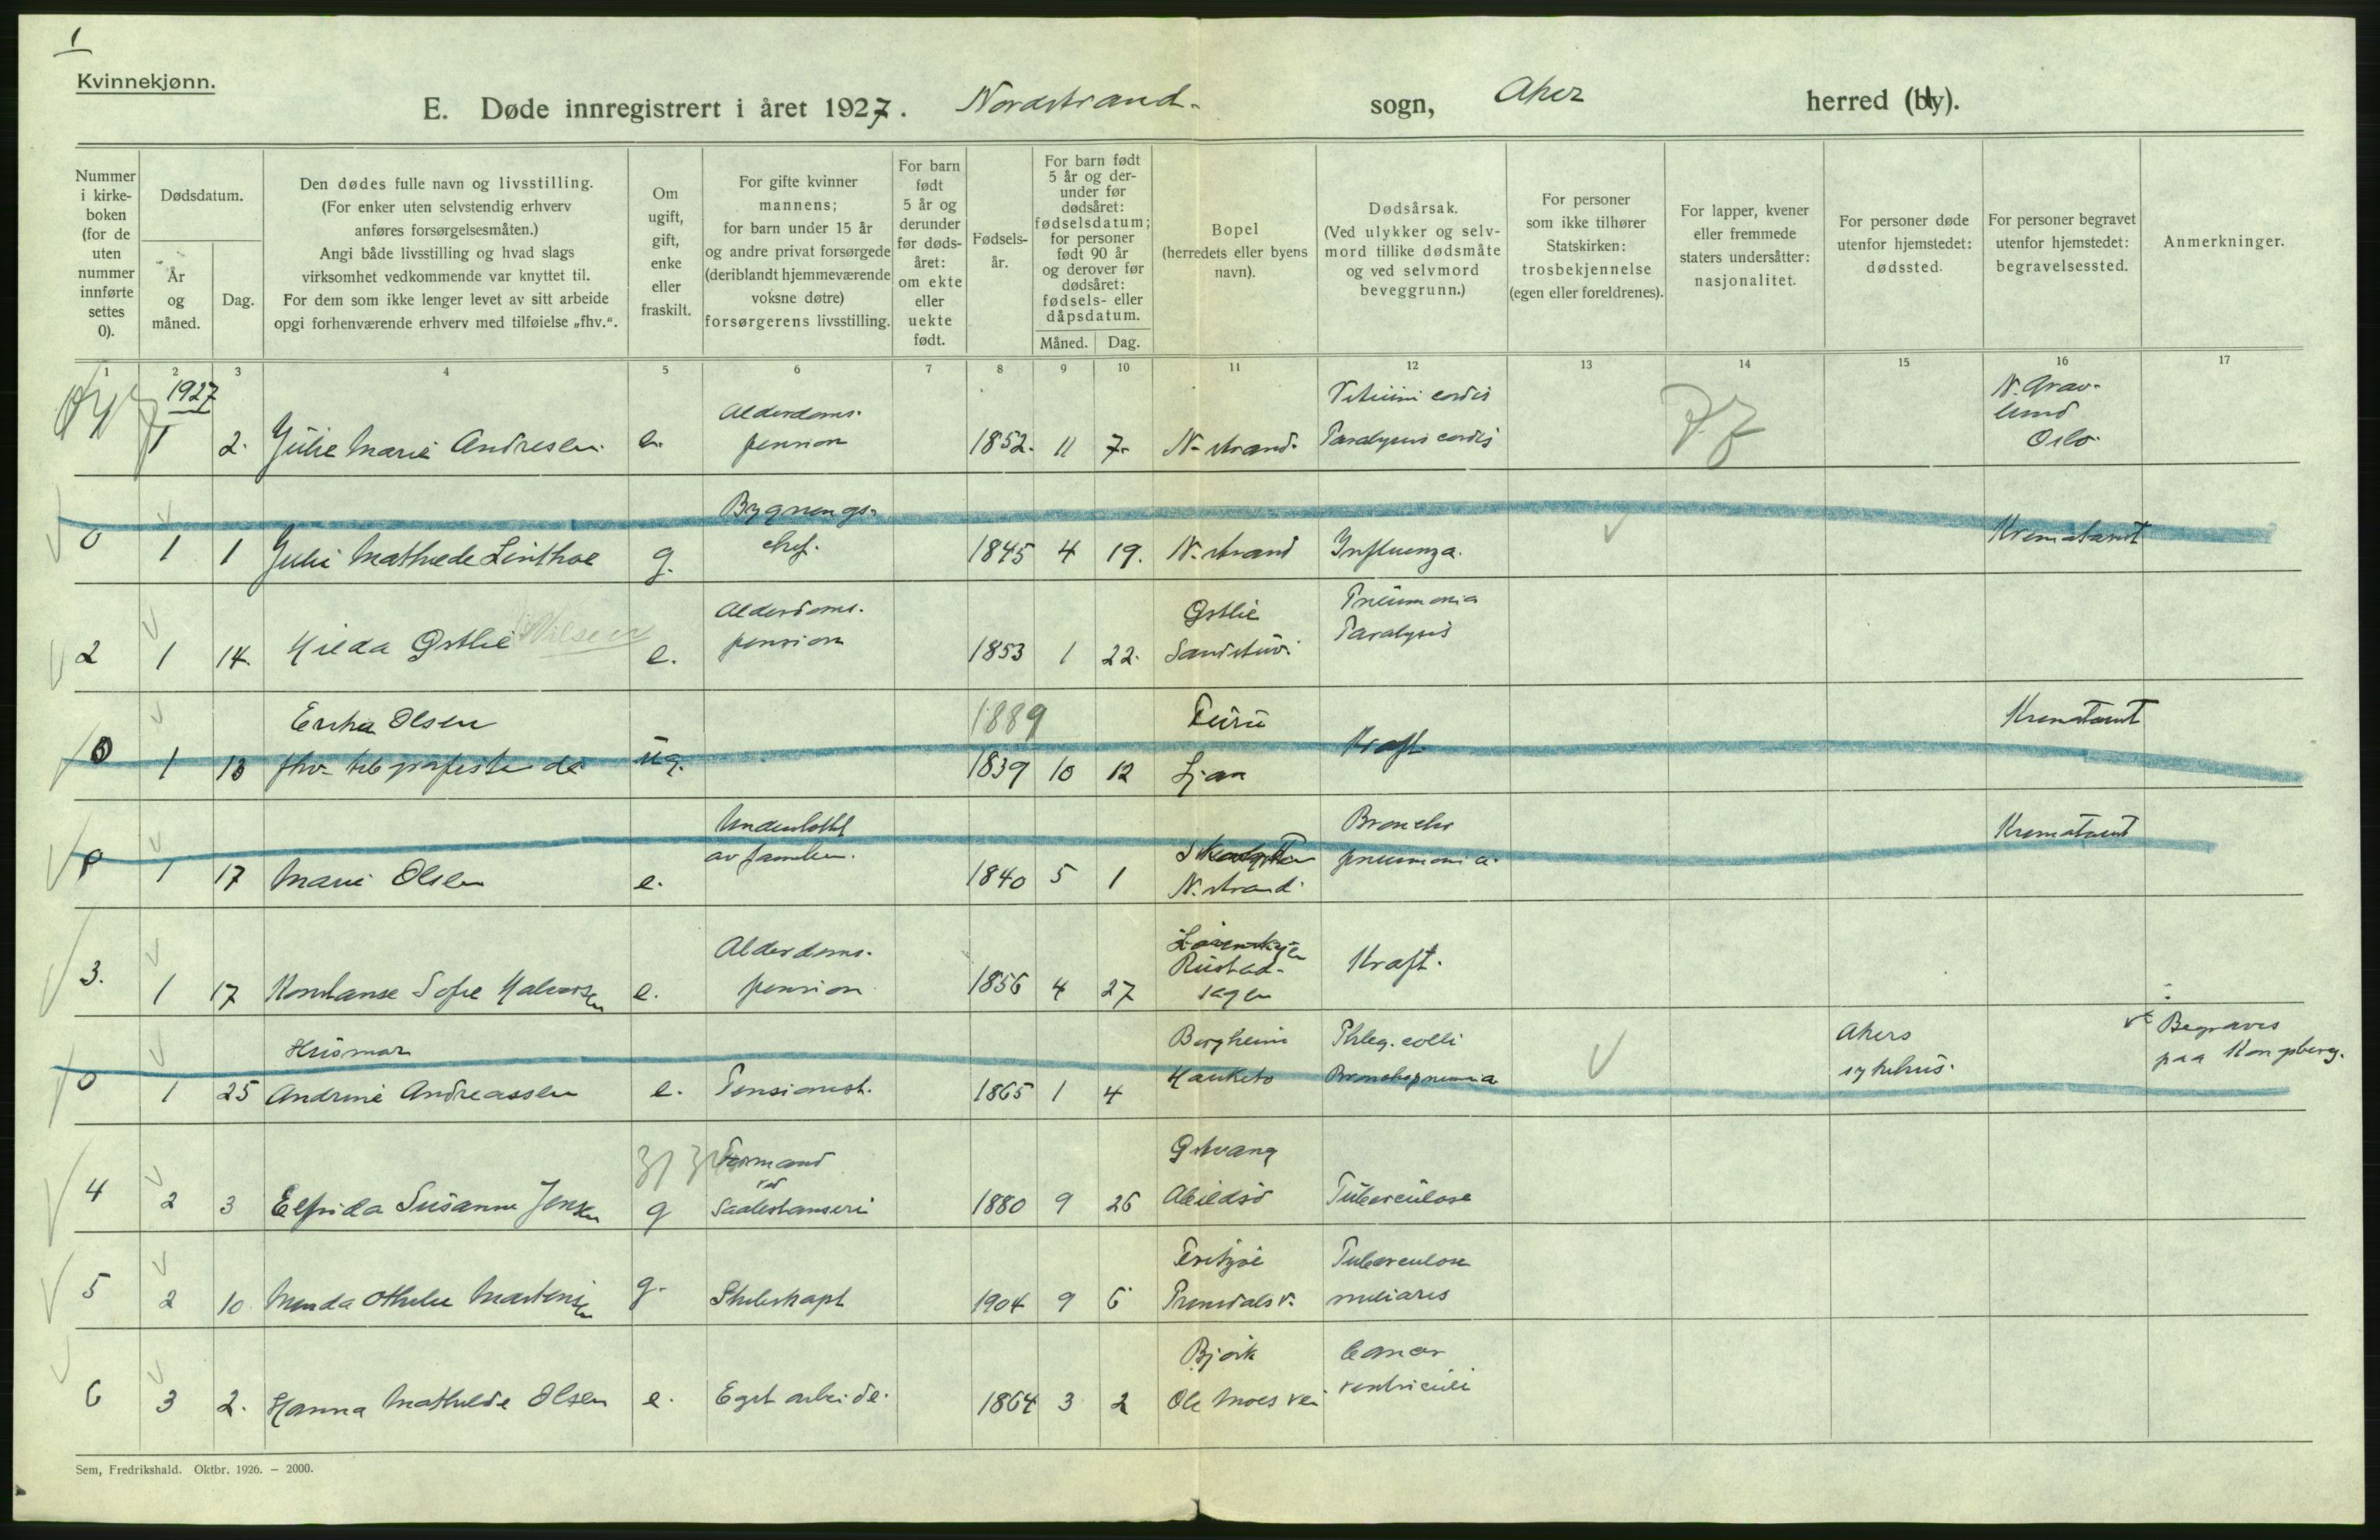 1
Kvinnekjønn.
E. Døde innregistrert i året 1927. Nordstrand. sogn, Aker herred (by).
Nummer i kirkeboken (for de uten nummer innførte settes 0).
Dødsdatum.
År og måned.
Dag.
Den dødes fulle navn og livsstilling.
(For enker uten selvstendig erhverv
anføres forsørgelsesmåten.)
Angi både livsstilling og hvad slags
virksomhet vedkommende var knyttet til.
For dem som ikke lenger levet av sitt arbeide
opgi forhenværende erhverv med tilføielse „fhv.“.
Om
ugift,
gift,
enke
eller
fraskilt.
For gifte kvinner
mannens;
for barn under 15 år
og andre privat forsørgede
(deriblandt hjemmeværende
voksne døtre)
forsørgerens livsstilling.
For barn
født
5 år og
derunder
før døds-
året:
om ekte
eller
uekte
født.
Fødsels-
år.
For barn født
5 år og der-
under før
dødsåret:
fødselsdatum;
for personer
født 90 år
og derover før
dødsåret:
fødsels- eller
dåpsdatum.
Måned. Dag.
Bopel
(herredets eller byens
navn).
Dødsårsak.
(Ved ulykker og selv-
mord tillike dødsmåte
og ved selvmord
beveggrunn.)
For personer
som ikke tilhører
Statskirken:
trosbekjennelse
(egen eller foreldrenes).
For lapper, kvener
eller fremmede
staters undersåtter:
nasjonalitet.
For personer døde
utenfor hjemstedet:
dødssted.
For personer begravet
utenfor hjemstedet:
begravelsessted.
Anmerkninger.
1 2 3 4 5 6 7 8 9 10 11 12 13 14 15 16 17
1927
1 2. Julie Marie Andresen. e. Alderdoms-
pension 1852. 11 7. N-strand. Vitium cordis
Paralysis cordis N. Grav-
lund
Oslo.
0 1 1 Julie Mathilde Linthoe g. Bygnings-
chef. 1845 4 19. N. strand Influenza. Krematoriet
2 1 14. Hilda Østlie Nilsen e. Alderdoms-
pension 1853 1 22. Østlie
Sandstuv. Pneumonia
Paralysis
0 1 13 Ericha Olsen
fhv. telegrafist ug. 1889
1839 10 12 Furu
Ljan Kraft Krematoriet
0 1 17 Marie Olsen e. Underholdt
av familien. 1840 5 1 N. strand. Broncho
pneumonia. Krematoriet
3. 1 17 Konstanse Sofie Halvorsen e. Alderdoms-
pension 1856 4 27 Lørenskogen
Rustad-
sagen Kraft.
0 1 25 Husmor
Andrine Andreassen e. Pensionist. 1865 1 4 Bergheim
Hauketo Phleg. colli
Bronchopneumonia Akers
sykehus. Begraves
paa Kongsberg.
4 2 3 Elfrida Susanne Jensen g Formand
ved 1880 9 26 Østvang
Abildsø Tuberculose
5 2 10 Othilie Martinsen g. 1904 9 6 Tuberculose
miliaris
6 3 2. Hanna Mathilde Olsen e. Eget arbeide. 1864 3 2 Bjørk
Ole Moes vei Cancer
ventriculi
Sem, Fredrikshald. Oktbr. 1926. — 2000.